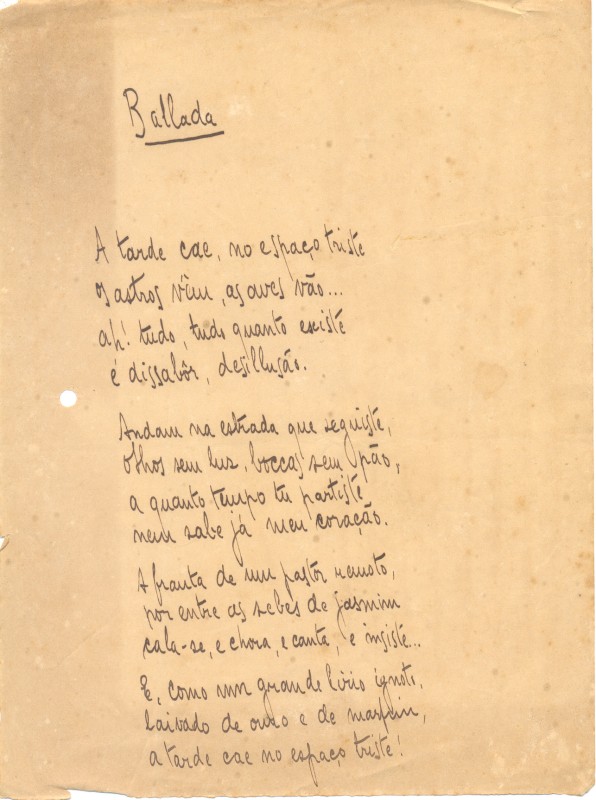 Ballada
A tarde cae, no espaço triste
os astros vêm, as aves vão...
ah! tudo, tudo quanto existe
é dissabôr, desillusão.
Andam na estrada que seguiste,
olhos sem luz, boccas sem pão,
a quanto tempo tu partiste
nem sabe já meu coração.
A frauta de um pastor remoto,
por entre as sebes de jasmim
cala-se, e chora, e canta, e insiste...
E, como um grande lirio ignoto,
laivado de ouro e de marfim,
a tarde cae no espaço triste!